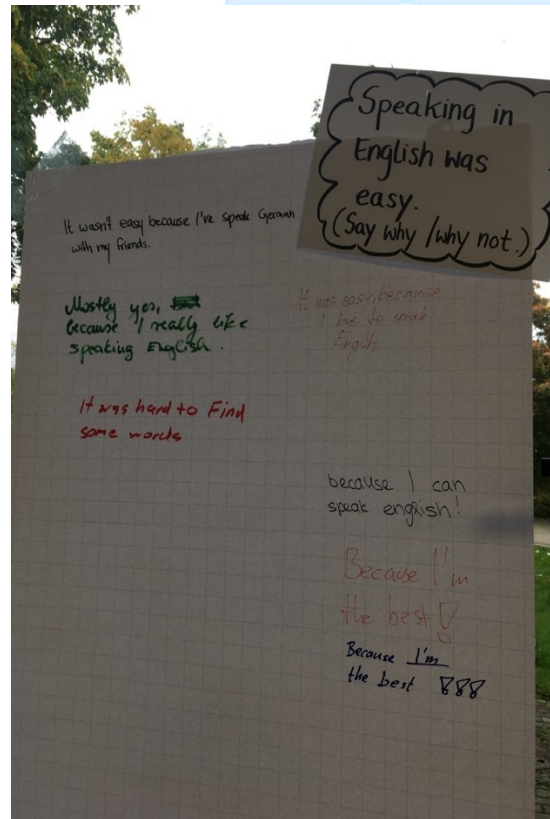 Speaking in
English was
easy.
(Say why / why not.)
It wasn't easy because I've speak German
with my friends.
Mostly yes,
because I really like
speaking English.
It was easy, because
I love to speak
English
It was hard to Find
some words
because I can
speak english!
Because I'm
the best!
Because I'm
the best !!!